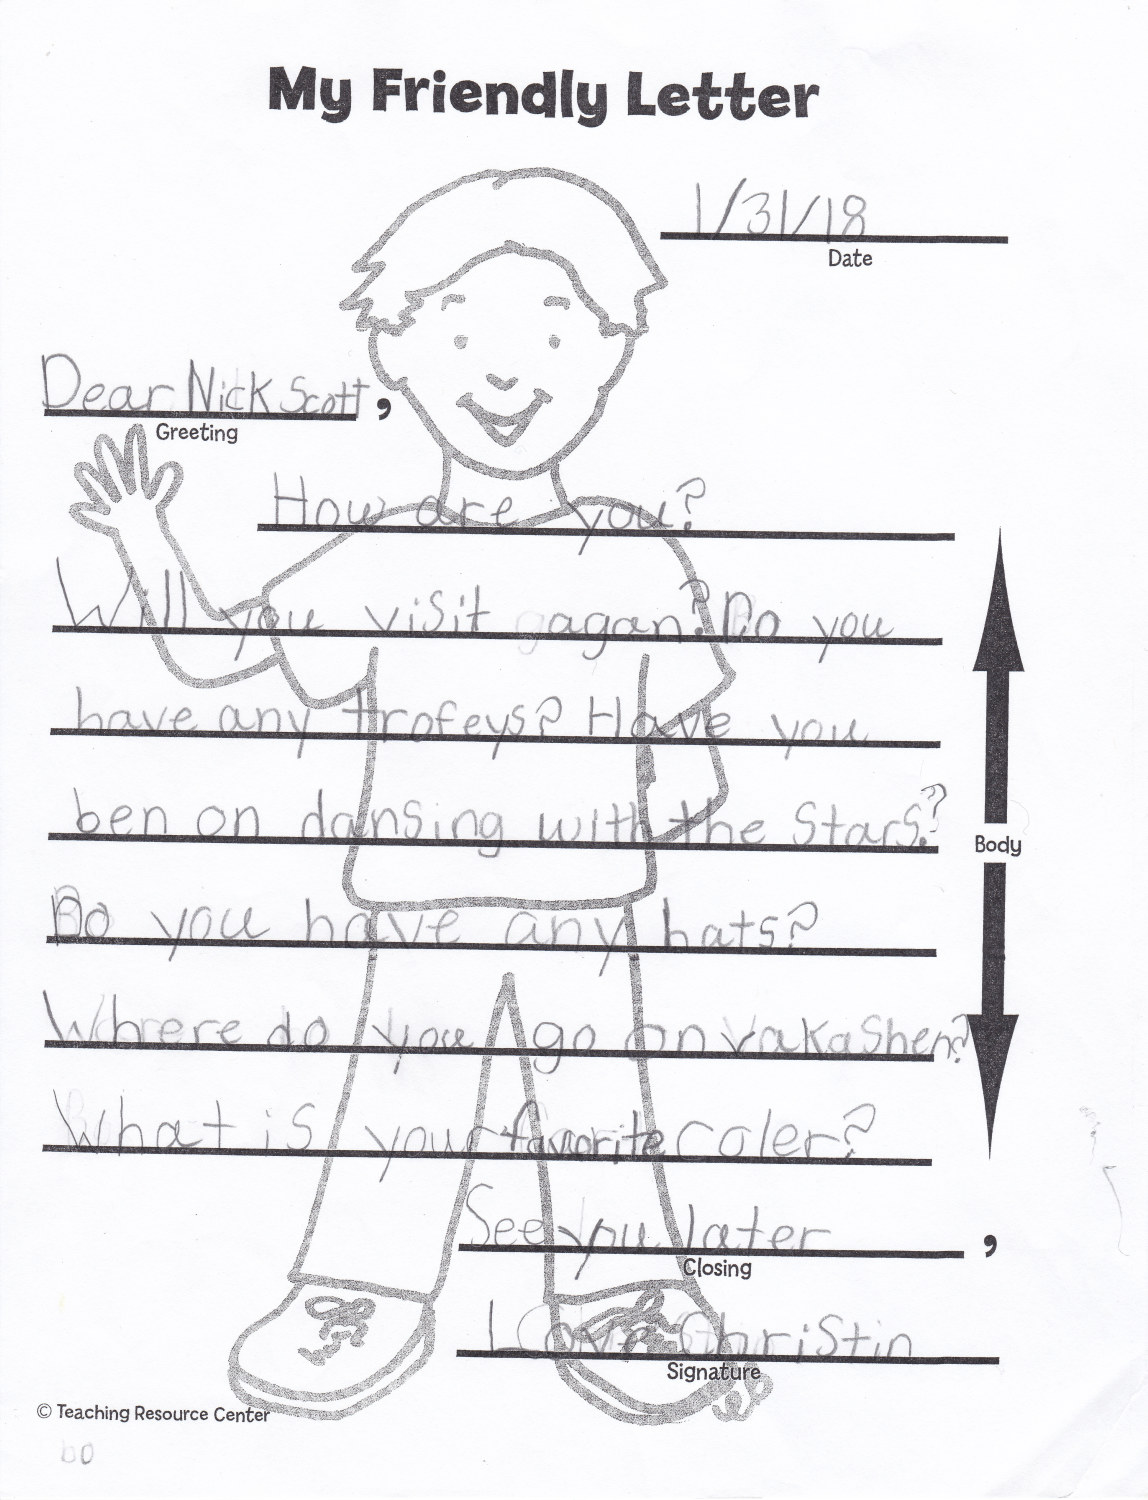 My Friendly Letter
1/31/18
Date
Dear Nick Scott,
Greeting
How are you?
Will you visit gagan? Do you
have any trofeys? Have you
ben on dansing with the Stars?
Do you have any hats?
Where do you go on vakashen?
What is your favorite coler?
Body
See you later,
Closing
Love Christin
Signature
© Teaching Resource Center
bo